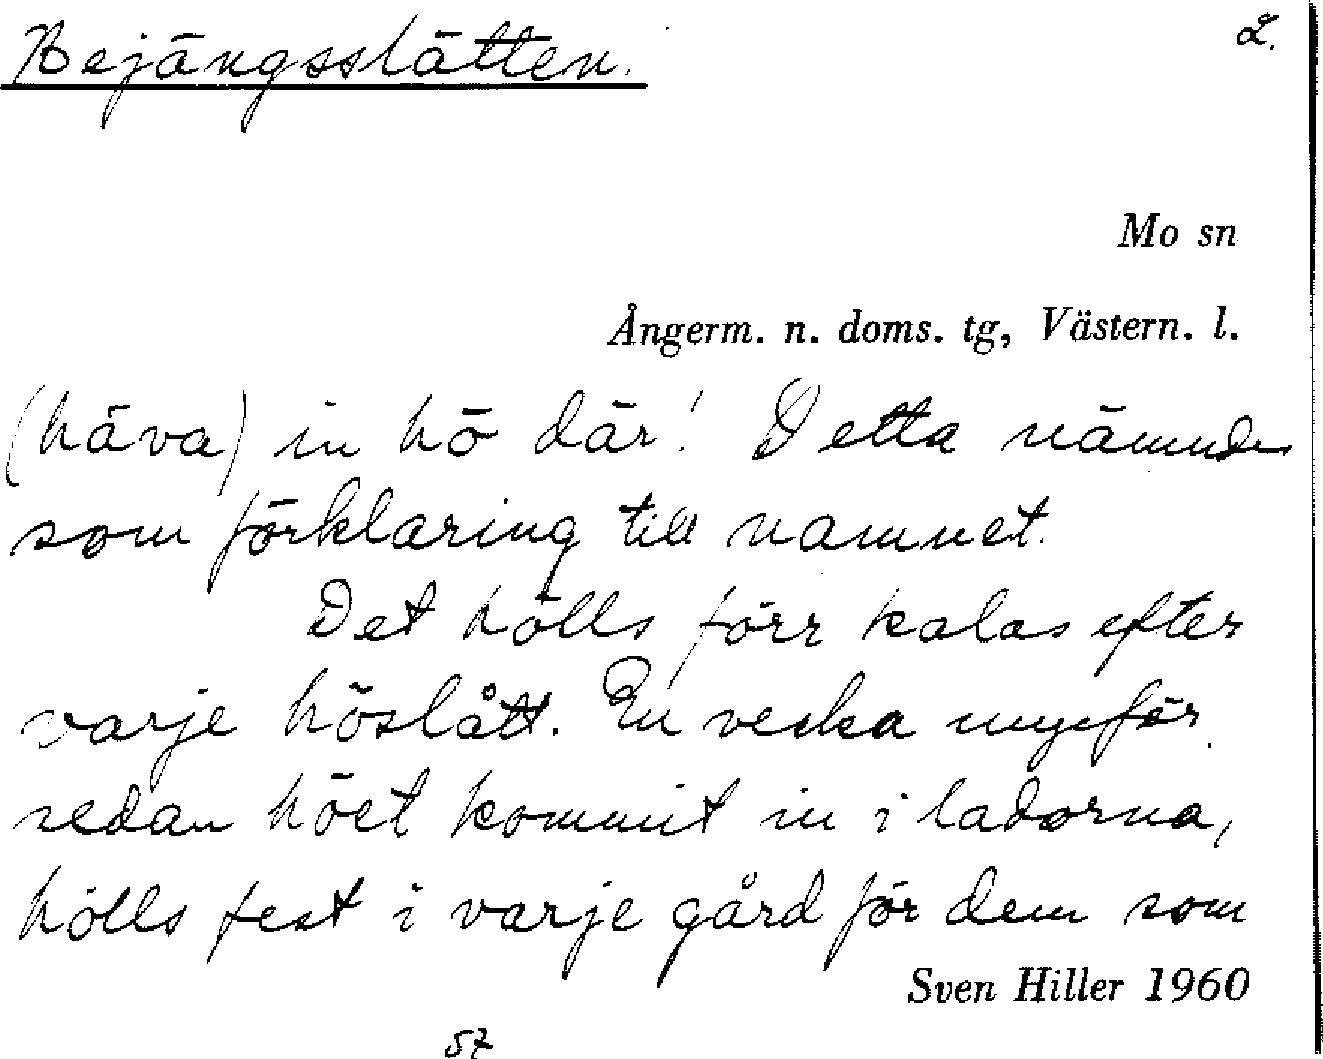 Bejängsslätten.
2.
Mo sn
Ångerm. n. doms. tg, Västern. l.
(häva) in hö där! Detta nämndes
som förklaring till namnet.
Det hölls förr kalas efter
varje höslått. En vecka ungefär
sedan höet kommit in i ladorna,
hölls fest i varje gård för dem som
Sven Hiller 1960
57